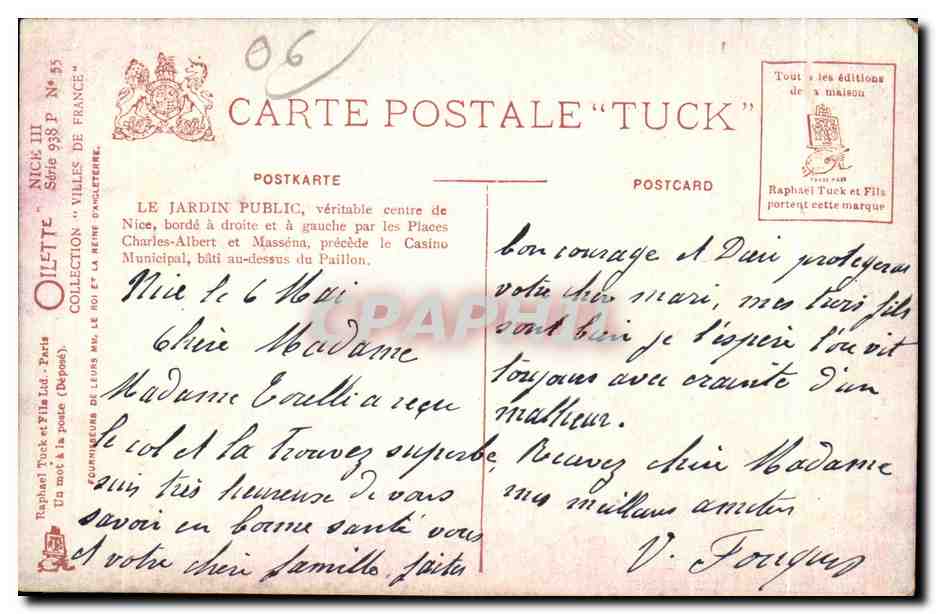 06
CARTE POSTALE "TUCK"
POSTKARTE
POSTCARD
Tout les éditions
de a maison
Raphael Tuck et Fils
portent cette marque
OILETTE" NICE III
Série 938 P Nº 55
COLLECTION "VILLES DE FRANCE"
FOURNISSEURS DE LEURS MM. LE ROI ET LA REINE D'ANGLETERRE.
Raphael Tuck et Fils Ltd. - Paris
Un mot à la poste (Déposé).
LE JARDIN PUBLIC, véritable centre de
Nice, bordé à droite et à gauche par les Places
Charles-Albert et Masséna, précède le Casino
Municipal, bâti au-dessus du Paillon.
CPAPHIL
Nice le 6 Mai
Chère Madame
Madame Torelli a reçu
le col et la trouvez superbe,
suis très heureuse de vous
savoir en bonne santé vous
et votre chère famille, faites
bon courage et Dieu protegeras
votre cher mari, mes trois fils
sont bien je l'espère l'on vit
toujours avec crainte d'un
malheur.
Recevez chère Madame
mes meilleurs amities
V.